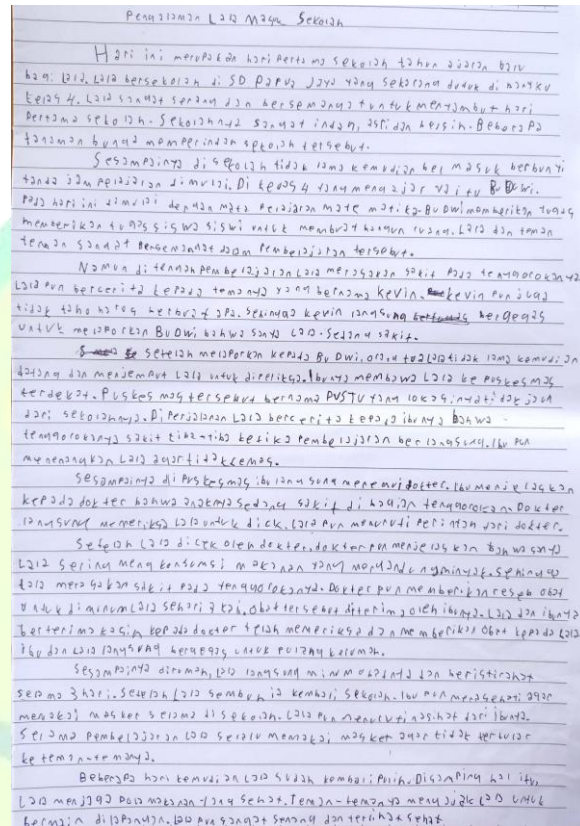 Pengalaman Lala Masuk Sekolah
Hari ini merupakan hari pertama sekolah tahun ajaran baru
bagi Lala. Lala bersekolah di SD Papua Jaya yang sekarang duduk di bangku
kelas 4. Lala sangat senang dan bersemangat untuk menyambut hari
pertama sekolah. Sekolahnya sangat indah, asri dan bersih. Beberapa
tanaman bunga memperindah sekolah tersebut.
Sesampainya di sekolah tidak lama kemudian bel masuk berbunyi
tanda jam pelajaran dimulai. Di kelas 4 yang mengajar yaitu Bu Dwi.
Pada hari ini dimulai dengan mata pelajaran matematika. Bu Dwi memberikan tugas
memberikan tugas siswa siswi untuk membuat bangun ruang. Lala dan teman
teman sangat bersemangat dalam pembelajaran tersebut.
Namun di tengah pembelajaran Lala merasakan sakit pada tenggorokannya
Lala pun bercerita kepada temanya yang bernama Kevin. Kevin pun juga
tidak tahu harus berbuat apa. Sehingga Kevin langsung bergegas
untuk melaporkan Bu Dwi bahwa sanya Lala sedang sakit.
Setelah melaporkan kepada Bu Dwi, orang tua Lala tidak lama kemudian
datang dan menjemput Lala untuk diperiksa. Ibunya membawa Lala ke puskesmas
terdekat. Puskesmas tersebut bernama PUSTU yang lokasinya tidak jauh
dari sekolahnya. Di perjalanan Lala bercerita kepada ibunya bahwa
tenggorokanya sakit tiba-tiba ketika pembelajaran berlangsung. Ibu pun
menenangkan Lala agar tidak lemas.
Sesampainya di puskesmas ibu langsung menemui dokter. Ibu menjelaskan
kepada dokter bahwa anaknya sedang sakit di bagian tenggorokan. Dokter
langsung memeriksa Lala untuk dicek. Lala pun menuruti perintah dari dokter.
Setelah Lala dicek oleh dokter, dokter pun menjelaskan bahwasanya
Lala sering mengkonsumsi makanan yang mengandung minyak. Sehingga
Lala merasakan sakit pada tenggorokanya. Dokter pun memberikan resep obat
untuk diminum Lala sehari 3 kali. Obat tersebut diterima oleh ibunya. Lala dan ibunya
berterima kasih kepada dokter telah memeriksa dan memberikan obat kepada Lala
ibu dan Lala langsung bergegas untuk pulang kerumah.
Sesampainya dirumah, Lala langsung minum obatnya dan beristirahat
selama 3 hari. Setelah Lala sembuh ia kembali sekolah. Ibu pun menasehati agar
memakai masker selama di sekolah. Lala pun menuruti nasihat dari ibunya.
Selama pembelajaran Lala selalu memakai masker agar tidak tertular
ke teman-temanya.
Beberapa hari kemudian Lala sudah kembali pulih. Disamping hal itu,
Lala menjaga pola makanan yang sehat. Teman-temanya mengajak Lala untuk
bermain di lapangan. Lala pun sangat senang dan terlihat sehat.